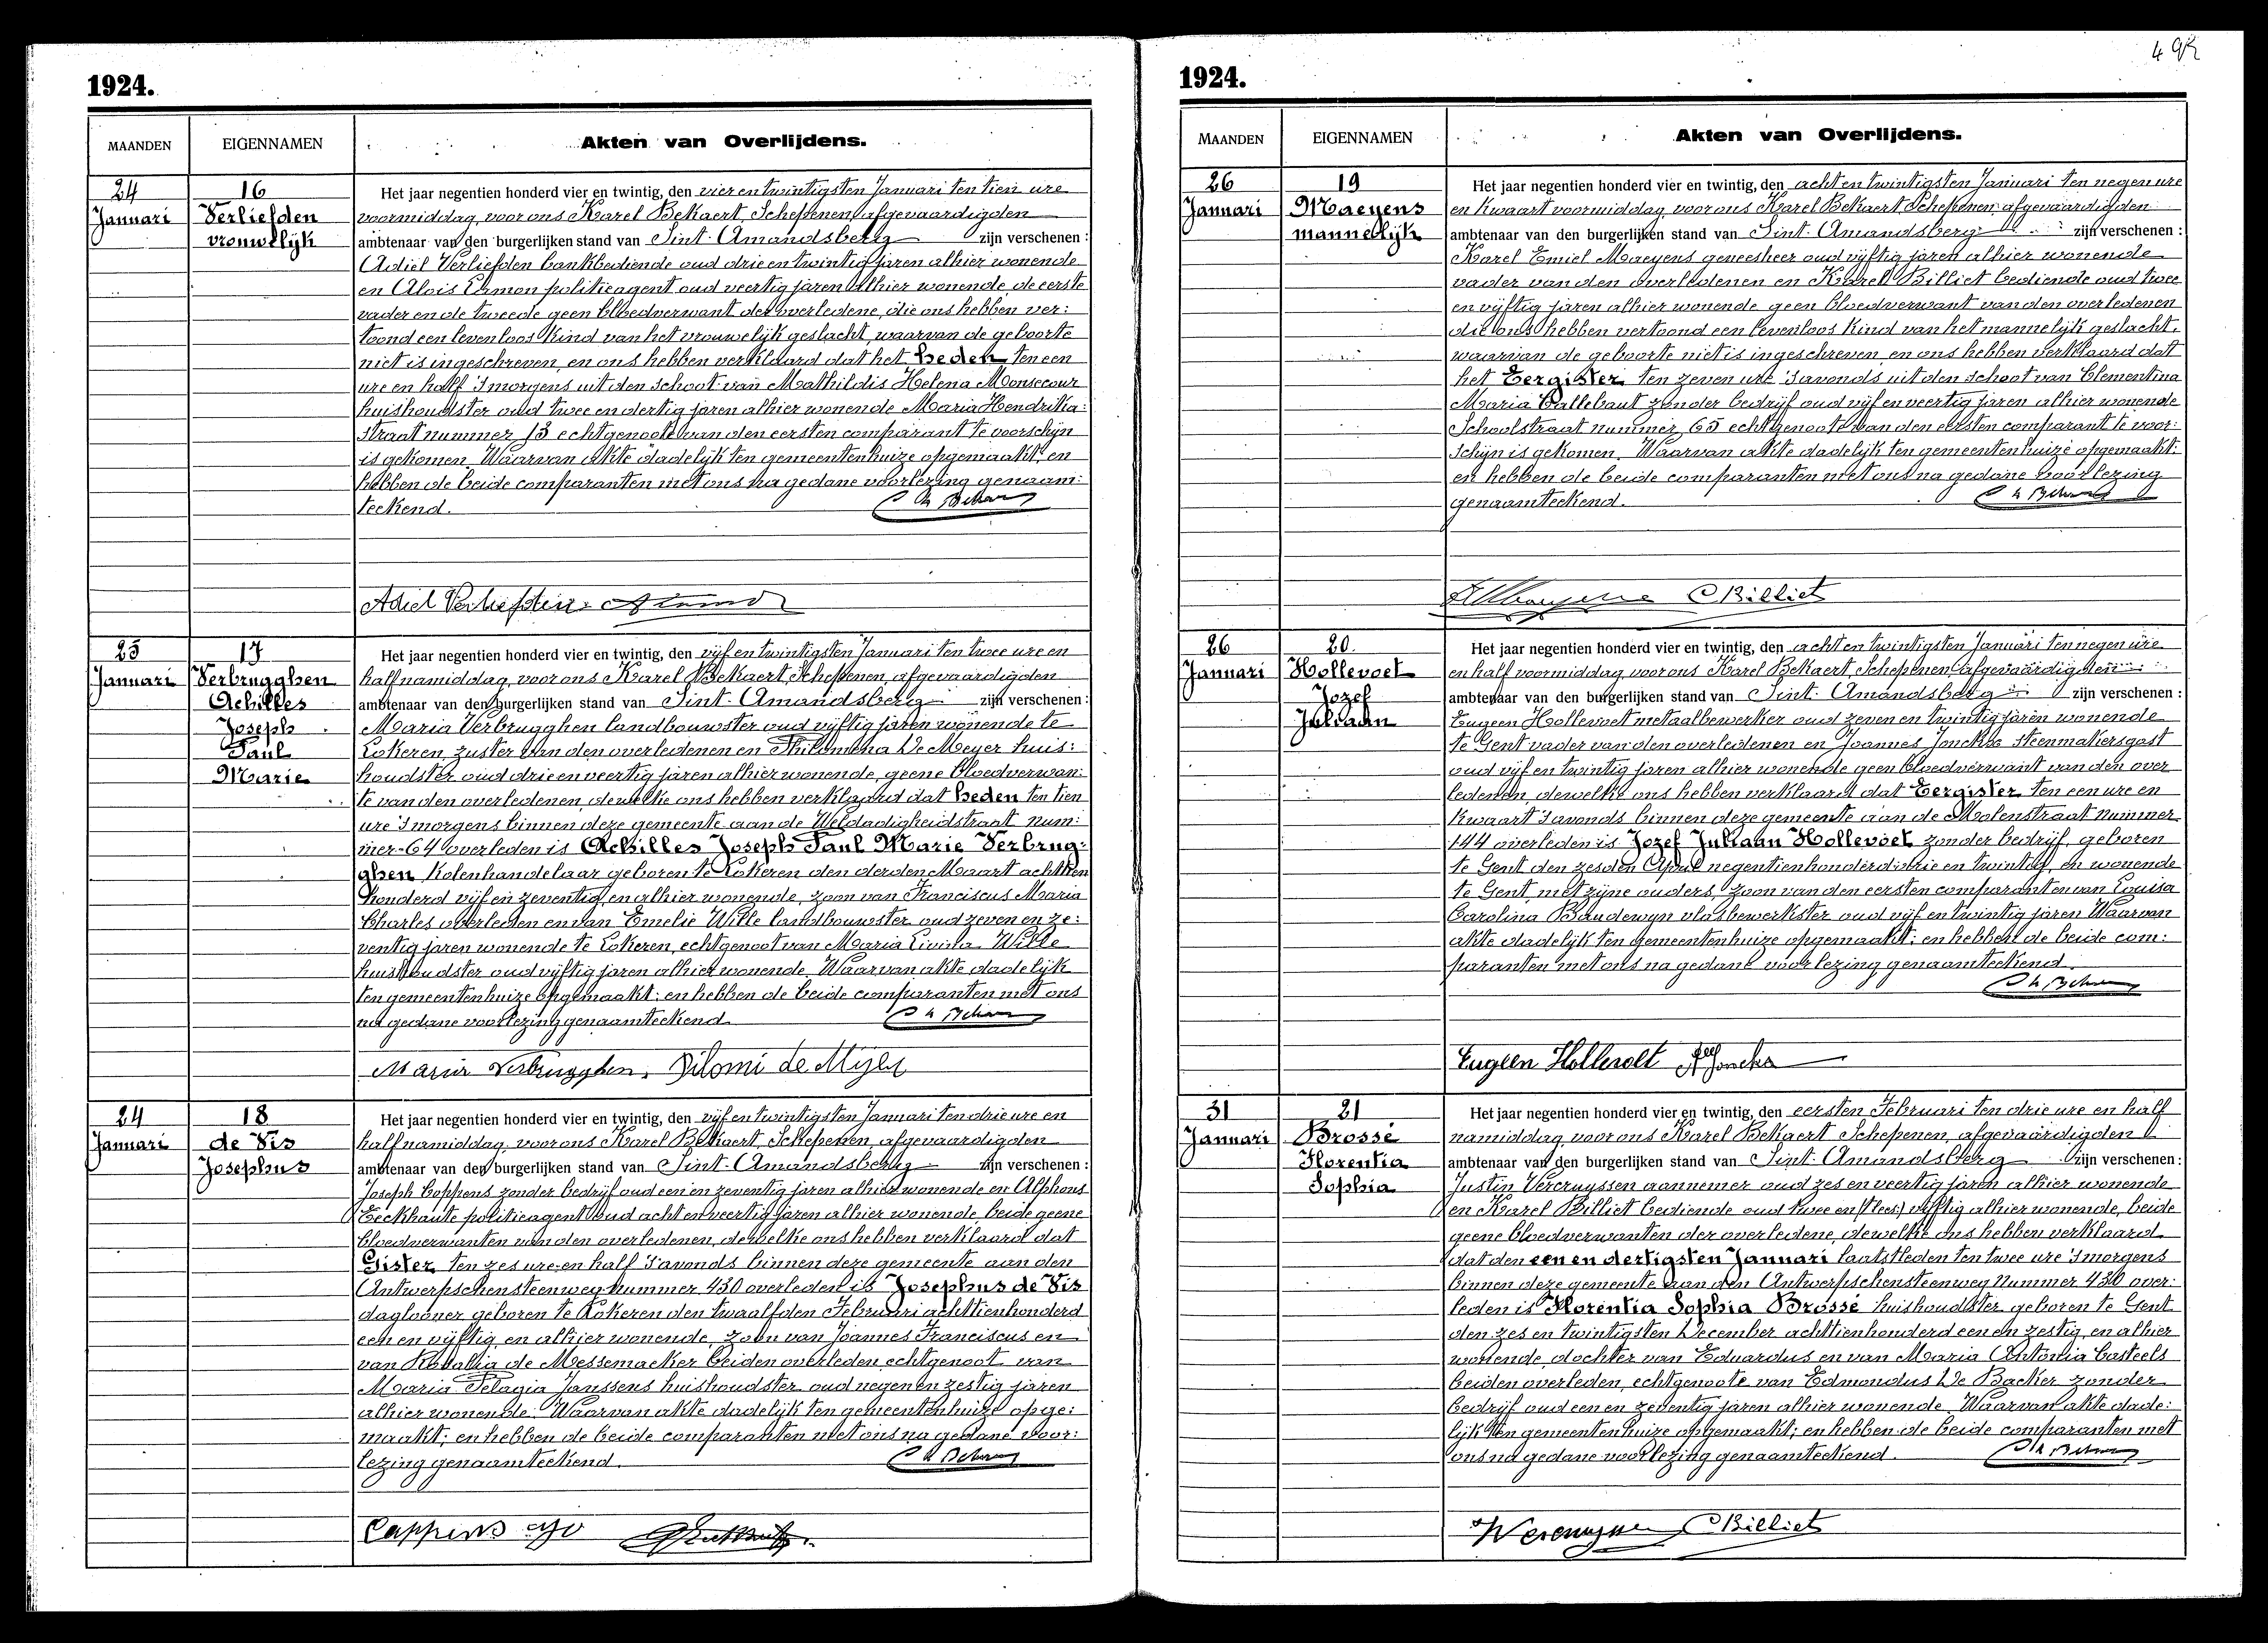 1924.
MAANDEN
EIGENNAMEN
Akten van Overlijdens.
24
Januari
16
Verliefden
vrouwelijk
Het jaar negentien honderd vier en twintig, den vier en twintigsten Januari ten tien ure
voormiddag, voor ons Karel Bekaert, Schepenen, afgevaardigden
ambtenaar van den burgerlijken stand van Sint-Amandsberg zijn verschenen :
Adiel Verliefden bankbediende oud drie en twintig jaren alhier wonende
en Alois politieagent oud veertig jaren alhier wonende, de eerste
vader en de tweede geen bloedverwant der overledene, die ons hebben ver:
toond een levenloos kind van het vrouwelijk geslacht, waarvan de geboorte
niet is ingeschreven, en ons hebben verklaard dat het heden ten een
ure en half 's morgens uit den schoot van Mathildis Helena Monsecour
huishoudster oud twee en dertig jaren alhier wonende Maria Hendrika:
straat nummer 13 echtgenoote van den eersten comparant te voorschijn
is gekomen. Waarvan akte dadelijk ten gemeentenhuize opgemaakt; en
hebben de beide comparanten met ons na gedane voorlezing genaam:
teekend.
Adiel Verliefden
25
Januari
17
Verbrugghen
Achilles
Joseph
Paul
Marie
Het jaar negentien honderd vier en twintig, den vijf en twintigsten Januari ten twee ure en
half namiddag, voor ons Karel Bekaert, Schepenen, afgevaardigden
ambtenaar van den burgerlijken stand van Sint-Amandsberg zijn verschenen :
Maria Verbrugghen landbouwster oud vijftig jaren wonende te
Lokeren, zuster van den overledenen en Philomena De Meyer huis:
houdster oud drie en veertig jaren alhier wonende, geene bloedverwan:
te van den overledenen, dewelke ons hebben verklaard dat heden ten tien
ure 's morgens binnen deze gemeente aan de Weldadigheidstraat num:
mer 64 overleden is Achilles Joseph Paul Marie Verbrug:
ghen kolenhandelaar geboren te Lokeren den derden Maart achttien
honderd vijf en zeventig en alhier wonende, zoon van Franciscus Maria
Charles overleden en van Emelie Wille landbouwster oud zeven en ze:
ventig jaren wonende te Lokeren, echtgenoot van Maria Livina Wille
huishoudster oud vijftig jaren alhier wonende. Waarvan akte dadelijk
ten gemeentenhuize opgemaakt; en hebben de beide comparanten met ons
na gedane voorlezing genaamteekend.
Maria Verbrugghen. Filomi de Mijer
24
Januari
18
de Vis
Josephus
Het jaar negentien honderd vier en twintig, den vijf en twintigsten Januari ten drie ure en
half namiddag, voor ons Karel Bekaert, Schepenen, afgevaardigden
ambtenaar van den burgerlijken stand van Sint-Amandsberg zijn verschenen :
Joseph Coppens zonder bedrijf oud een en zeventig jaren alhier wonende en Alphons
Eeckhaute politieagent oud acht en veertig jaren alhier wonende, beide geene
bloedverwanten van den overledenen, dewelke ons hebben verklaard dat
Gister ten zes ure en half 's avonds binnen deze gemeente aan den
Antwerpschensteenweg nummer 430 overleden is Josephus de Vis
daglooner geboren te Lokeren den twaalfden Februari achttienhonderd
een en vijftig, en alhier wonende, zoon van Joannes Franciscus en
van Rosallia de Messemaeker beiden overleden echtgenoot van
Maria Pelagia Janssens huishoudster oud negen en zestig jaren
alhier wonende. Waarvan akte dadelijk ten gemeentenhuize opge:
maakt; en hebben de beide comparanten met ons na gedane voor:
lezing genaamteekend.
Cappens
1924.
MAANDEN
EIGENNAMEN
Akten van Overlijdens.
26
Januari
19
Maeyens
mannelijk
Het jaar negentien honderd vier en twintig, den acht en twintigsten Januari ten negen ure
en kwaart voormiddag, voor ons Karel Bekaert Schepenen, afgevaardigden
ambtenaar van den burgerlijken stand van Sint-Amandsberg zijn verschenen :
Karel Emiel Maeyens geneesheer oud vijftig jaren alhier wonende
vader van den overledenen en Karel Billiet bediende oud twee
en vijftig jaren alhier wonende geen bloedverwant van den overledenen
die ons hebben vertoond een levenloos kind van het mannelijk geslacht,
waarvan de geboorte niet is ingeschreven, en ons hebben verklaard dat
het Eergister ten zeven ure 's avonds uit den schoot van Clementina
Maria Callebaut zonder bedrijf oud vijf en veertig jaren alhier wonende
Schoolstraat nummer 65 echtgenoote van den eersten comparant te voor:
schijn is gekomen. Waarvan akte dadelijk ten gemeentenhuize opgemaakt;
en hebben de beide comparanten met ons na gedane voorlezing
genaamteekend.
CBilliet
26
Januari
20.
Hollevoet
Jozef
Juliaan
Het jaar negentien honderd vier en twintig, den acht en twintigsten Januari ten negen ure
en half voormiddag, voor ons Karel Bekaert, Schepenen, afgevaardigden
ambtenaar van den burgerlijken stand van Sint-Amandsberg zijn verschenen :
Eugeen Hollevoet metaalbewerker oud zeven en twintig jaren wonende
te Gent vader van den overledenen en Joannes Jonckx steenmakersgast
oud vijf en twintig jaren alhier wonende geen bloedverwant van den over
ledenen, dewelke ons hebben verklaard dat Eergister ten een ure en
kwaart 's avonds binnen deze gemeente aan de Molenstraat nummer
144 overleden is Jozef Juliaan Hollevoet zonder bedrijf, geboren
te Gent den zesden April negentienhonderd drie en twintig, en wonende
te Gent met zijne ouders, zoon van den eersten comparant en van Louisa
Carolina Baudewyn vlasbewerkster oud vijf en twintig jaren Waarvan
akte dadelijk ten gemeentenhuize opgemaakt; en hebben de beide com:
paranten met ons na gedane voorlezing genaamteekend.
Eugeen Hollevoet Jonckx
31
Januari
21
Brossé
Florentia
Sophia
Het jaar negentien honderd vier en twintig, den eersten Februari ten drie ure en half
namiddag, voor ons Karel Bekaert Schepenen, afgevaardigden
ambtenaar van den burgerlijken stand van Sint-Amandsberg zijn verschenen :
Justin Vercruyssen aannemer oud zes en veertig jaren alhier wonende
en Karel Billiet bediende oud twee en (lees:) vijftig alhier wonende, beide
geene bloedverwanten der overledene, dewelke ons hebben verklaard
dat den een en dertigsten Januari laatstleden ten twee ure 's morgens
binnen deze gemeente aan den Antwerpschensteenweg nummer 430 over:
leden is Florentia Sophia Brossé huishoudster geboren te Gent
den zes en twintigsten December achttienhonderd een en zestig, en alhier
wonende, dochter van Eduardus en van Maria Antonia Casteels
beiden overleden, echtgenoote van Edmondus De Backer zonder
bedrijf oud een en zeventig jaren alhier wonende. Waarvan akte dade:
lijk ten gemeentenhuize opgemaakt; en hebben de beide comparanten met
ons na gedane voorlezing genaamteekend.
CBilliet